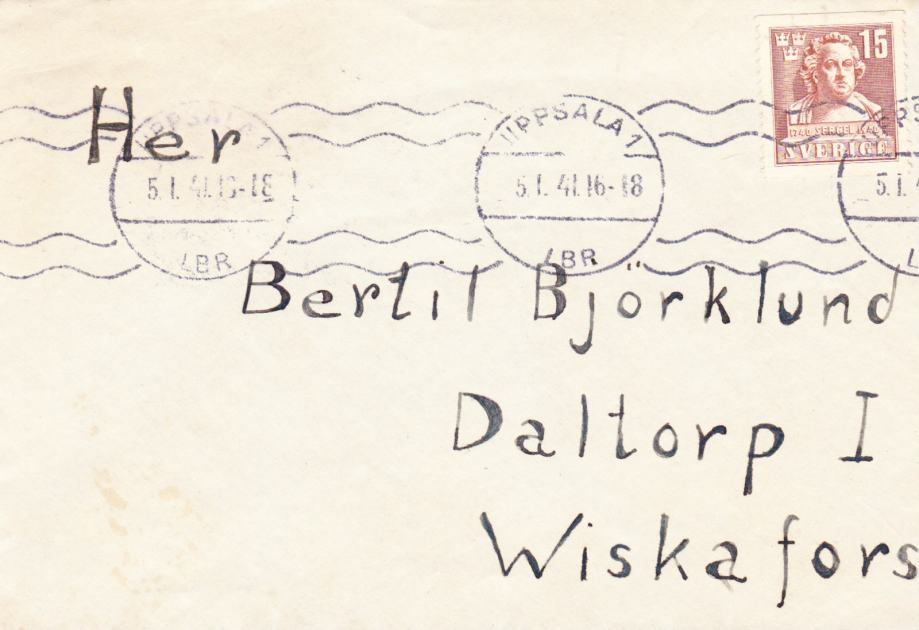 15
1740 SERGEL 1940
SVERIGE
Her
UPPSALA 1
5.1.41.16-18
LBR
UPPSALA 1
5.1.41.16-18
LBR
5.1.
Bertil Björklund
Daltorp I
Wiskafors